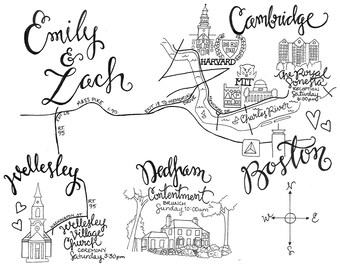 Emily
&
Zach
Cambridge
HARVARD
MIT
the Royal
Sonesta
RECEPTION
Saturday
6:00pm
MASS PIKE
I-90
Charles River
RT.
95
Wellesley
RT
95
Wellesley
Village
Church
CEREMONY
Saturday 3:30pm
Dedham
Contentment
BRUNCH
Sunday 10:00am
Boston
N
W
E
S